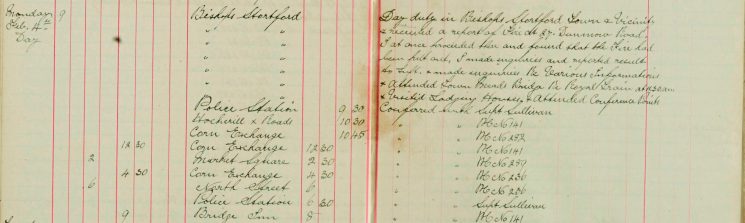 Monday 9 Bishops Stortford Day duty in Bishops Stortford Town & Vicinity
Feb. 4th " " & received a report of Fire at 27. Dunmow Road,
Day " " I at once proceeded there and found that the Fire had
" " been put out, I made enquiries and reported result
" " to Supt. & made enquiries Re Various Informations
" " & Attended Town Beards Bridge Re Royal Train at 11.30am
" " & Visited Lodging Houses, & Attended Conference Points
Police Station 9 30 Conferred with Supt Sullivan
Hockerill X Roads 10 30 " " PC No 141
Corn Exchange 10 45 " " PC No 292
12 30 Corn Exchange 12 30 " " PC No 141
2 Market Square 2 30 " " PC No 259
4 30 Corn Exchange 4 30 " " PC No 236
6 North Street 6 " " PC No 256
Police Station 6 30 " " Supt Sullivan
9 Bridge Inn 8 " " PC No 141